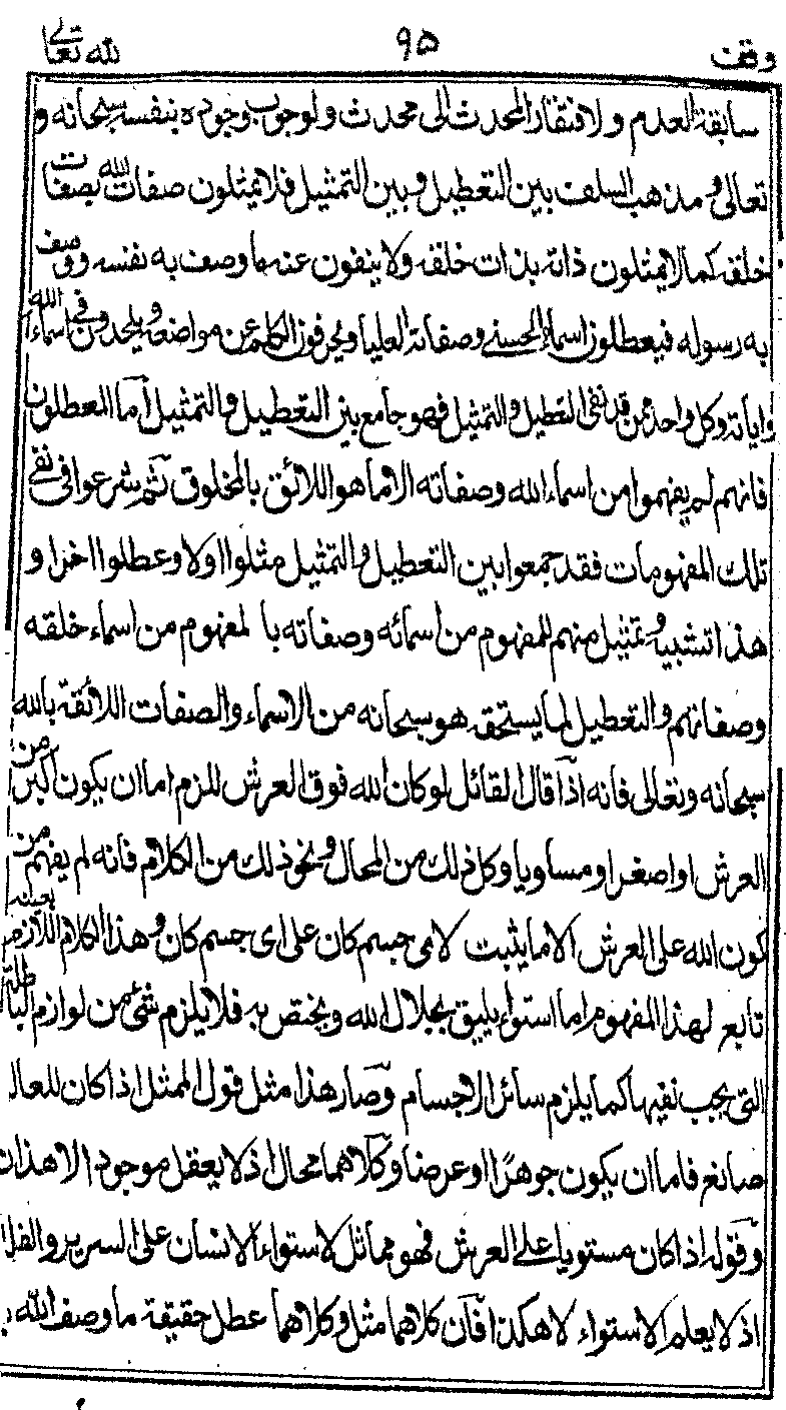 وقف ٩٥ لله تعالى
سابقة العدم ولافتقار المحدث الى محدث ولوجوب وجوده بنفسه سبحانه و
تعالى ومذهب السلف بين التعطيل وبين التمثيل فلا يمثلون صفات الله بصفات
خلقه كما لا يمثلون ذاته بذات خلقه ولا ينفون عنه ما وصف به نفسه ووصف
به رسوله فيعطلون اسماءه الحسنى وصفاته العليا ويحرفون الكلم عن مواضعه ويلحدون في اسماء الله
واياته وكل واحد من قد نفى التعطيل والتمثيل فهو جامع بين التعطيل والتمثيل أما المعطلون
فانهم لم يفهموا من اسماء الله وصفاته الا ما هو اللائق بالمخلوق ثم شرعوا في نفي
تلك المفهومات فقد جمعوا بين التعطيل والتمثيل مثلوا اولا وعطلوا اخرا و
هذا تشبيه وتمثيل منهم للمفهوم من أسمائه وصفاته با لمفهوم من اسماء خلقه
وصفاتهم والتعطيل لما يستحقه هو سبحانه من الاسماء والصفات اللائقة بالله
سبحانه وتعالى فانه اذا قال القائل لو كان الله فوق العرش للزم اما ان يكون اكبر من
العرش او اصغر او مساويا وكل ذلك من المحال ونحو ذلك من الكلام فانه لم يفهم من
كون الله على العرش الا ما يثبت لامى جسم كان على اى جسم كان وهذا الكلام اللازم بعينه
تابع لهذا المفهوم اما استواء يليق بجلال الله ويختص به فلا يلزم شئ من لوازم الباطلة
التي يجب نفيها كما يلزم سائر الاجسام وصار هذا مثل قول الممثل اذا كان للعالم
صانع فاما ان يكون جوهرًا او عرضا وكلاهما محال اذ لا يعقل موجود الا هذان
وقوله اذا كان مستويا على العرش فهو مماثل لاستواء الانسان على السرير والفلك
اذ لا يعلم الاستواء لا هكذا فان كلاهما مثل وكلاهما عطل حقيقة ما وصف الله به